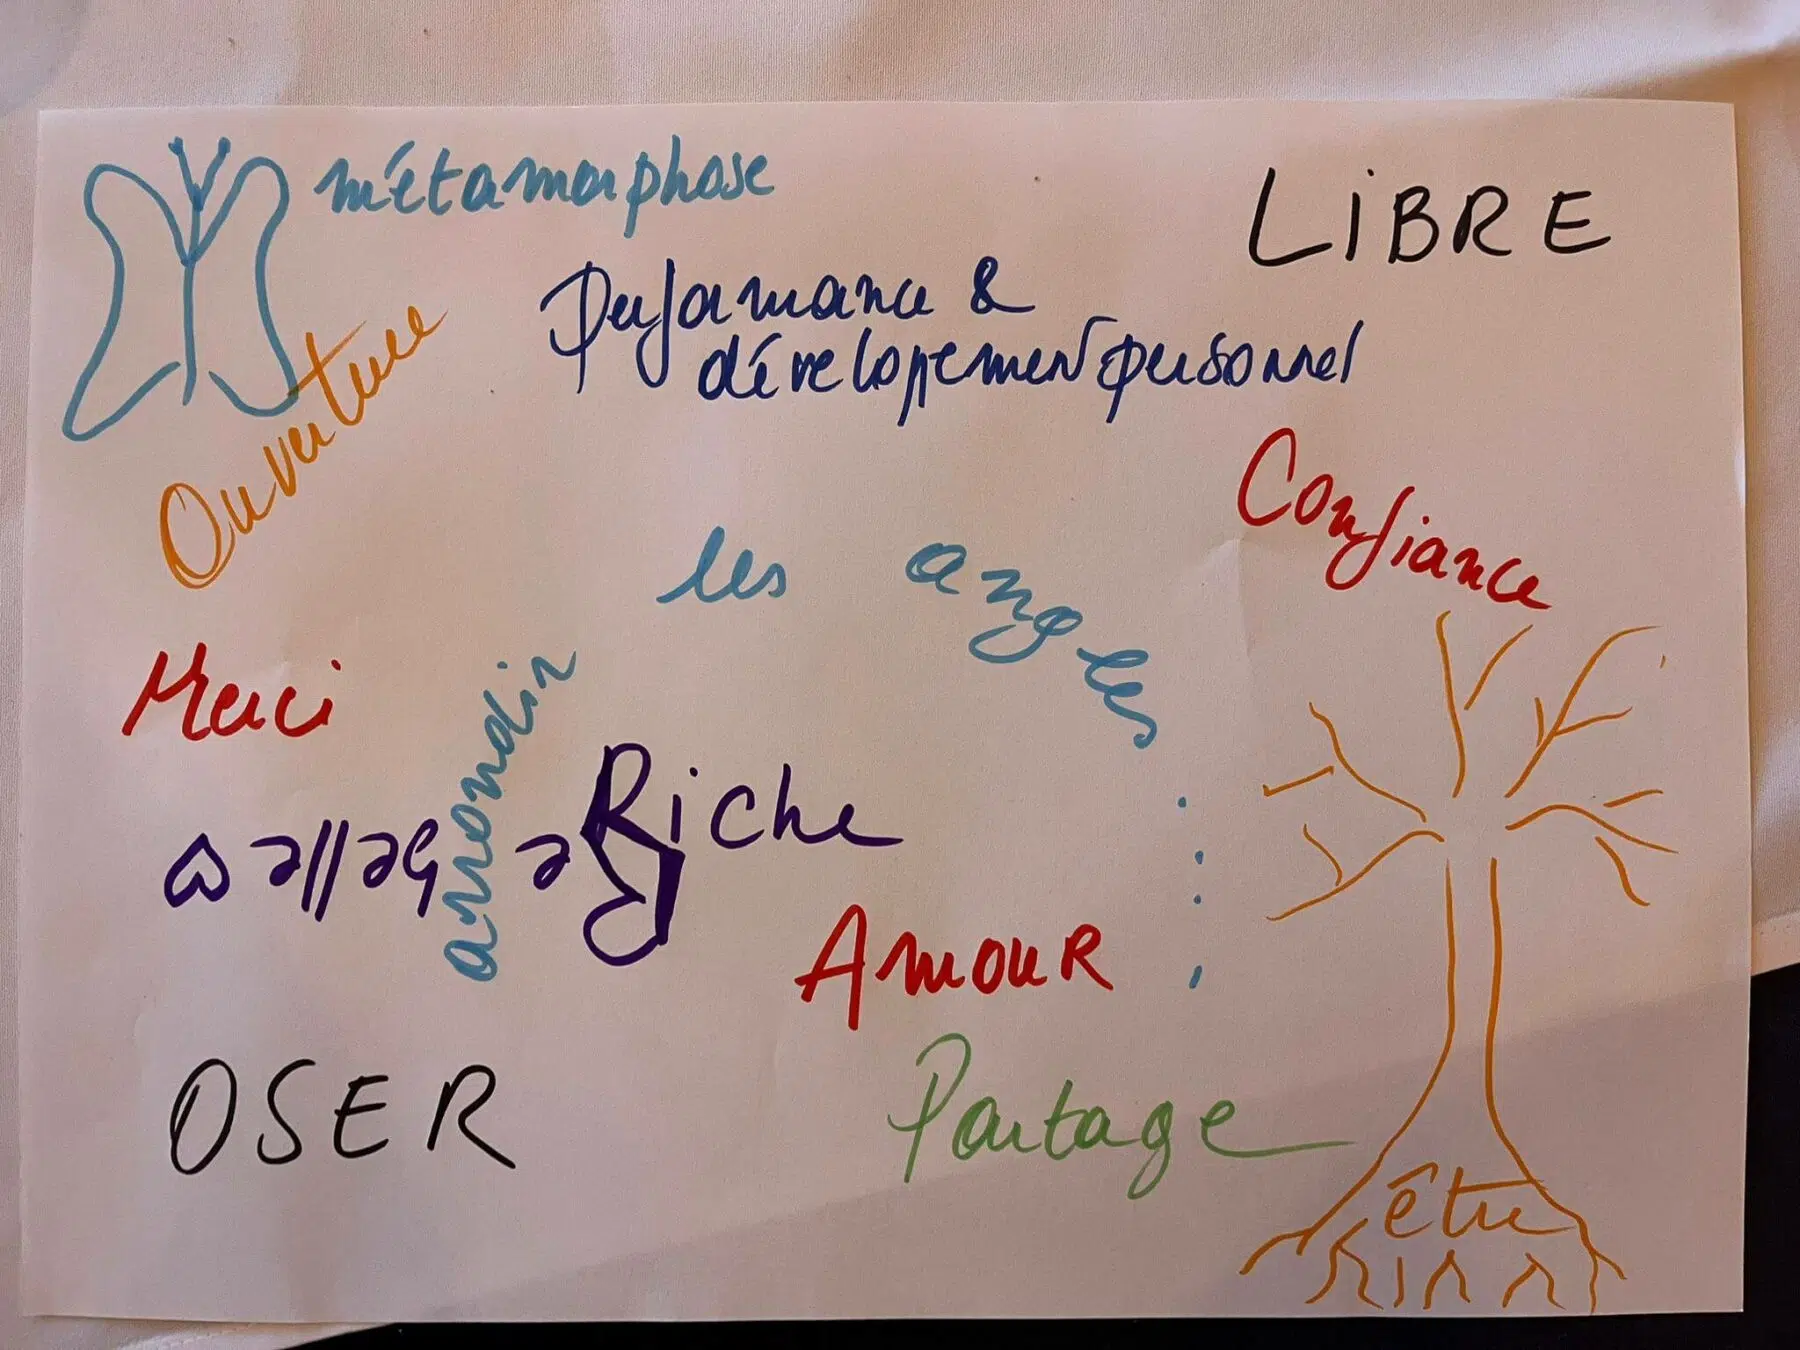 métamorphose
LiBRE
Performance &
développement personnel
Ouverture
Confiance
arrondir les angles
Merci
Riche
Rebelle
Amour
OSER
Partage
être